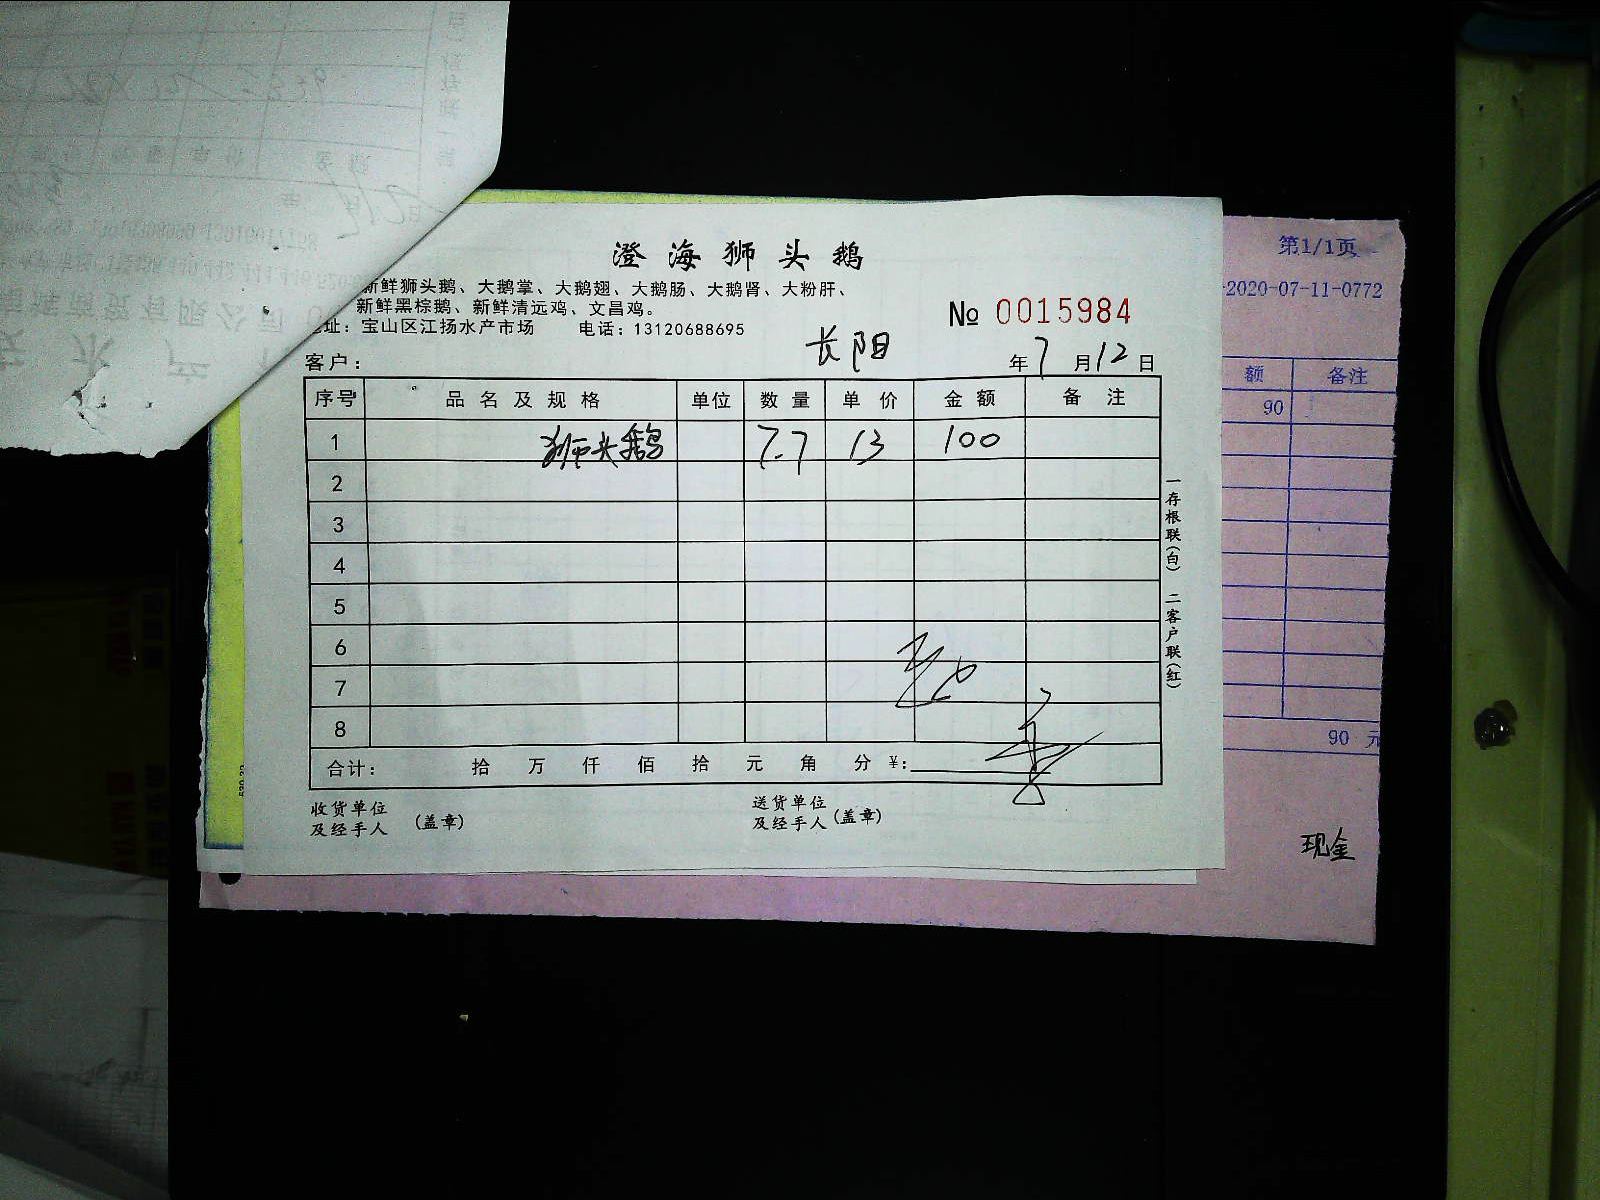 澄海狮头鹅
新鲜狮头鹅、大鹅掌、大鹅翅、大鹅肠、大鹅肾、大粉肝、
新鲜黑棕鹅、新鲜清远鸡、文昌鸡。
址：宝山区江扬水产市场 电话：13120688695
№ 0015984
客户： 长阳 年7月12日
序号 品名及规格 单位 数量 单价 金额 备注
1 狮头鹅 7.7 13 100
2
3
4
5
6
7
8
合计： 拾 万 仟 佰 拾 元 角 分 ¥:
收货单位
及经手人 (盖章)
送货单位
及经手人 (盖章)
一存根联(白) 二客户联(红)
第1/1页
-2020-07-11-0772
额 备注
90
90 元
现金